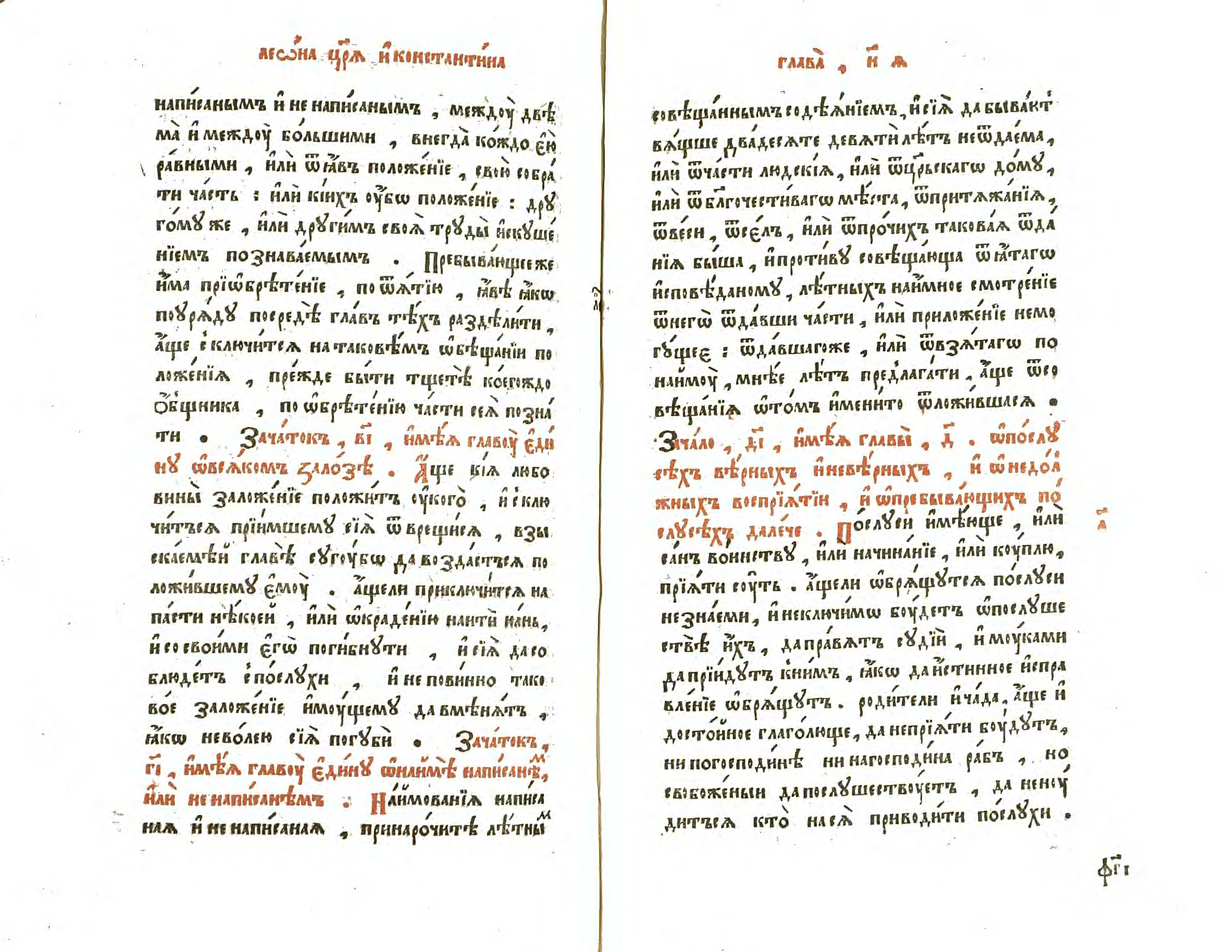 леѡ́на цр҃ѧ̀ и҆ константи́на
написа́нымъ и҆ не написа́нымъ , междоу̀ двѣ
ма̀ и҆ междоу̀ бо́льшими , внегда̀ ко́ждо є҆ю̀
ра́вными , и҆лѝ ѿ ꙗ҆́въ положе́нїе , свою̀ собра
ти ча́сть : и҆лѝ кі́ихъ оу҆́бѡ положе́нїе : дрꙋ
го́мꙋ же , и҆лѝ дрꙋги́мъ своѧ̀ трꙋды̀ и҆скꙋше́
нїемъ познава́емымъ . Пребыва́ющее же
и҆́ма прїѡбрѣте́нїе , по ѿѧ́тїю , ꙗ҆́вѣ ꙗ҆́кѡ
по ꙋрѧ́дꙋ посредѣ̀ гла́въ тѣ́хъ раздѣли́ти ,
а҆́ще с̾ключи́тсѧ на таковѣ́мъ ѡ҆бѣща́нїи по
ложе́нїѧ , пре́жде бы́ти тщетѣ̀ коегѡ́ждо
ѻ҆́бщника , по ѡ҆брѣте́нїю ча́сти сеѧ̀ позна́
ти . Зача́токъ , в҃і , и҆мѣ́ѧ главоу̀ є҆ди́
нꙋ ѡ҆ всѧ́комъ зало́зѣ . А҆́ще кі́ѧ любо
вины̀ заложе́нїе положи́тъ оу҆ кого̀ , и҆ с̾клю
чи́тьсѧ прїи́мшемꙋ сїѧ̀ ѿврещи́сѧ , взы
ска́емѣй главѣ̀ сꙋгоу́бѡ да возда́стьсѧ по
ложи́вшемꙋ є҆моу̀ . а҆́щели приключи́тсѧ на
па́сти нѣ́коей , и҆лѝ ѡ҆краде́нїю наитѝ на́нь,
и҆ со свои́ми є҆гѡ̀ поги́бнꙋти , и҆ сїѧ̀ да со
блюде́тъ с̾ по́слꙋхи , и҆ не пови́нно тако
во́е заложе́нїе и҆моу́щемꙋ да вмѣнѧ́тъ ,
ꙗ҆́кѡ нево́лею сїѧ̀ погꙋбѝ . Зача́токъ,
г҃і , и҆мѣ́ѧ главоу̀ є҆ди́нꙋ ѡ҆ наймѣ̀ написанѣ́ⷨ,
и҆лѝ не написанѣ́мъ . На́ймованїѧ написа
наѧ и҆ не написанаѧ , принаро́читѣ лѣ́тныⷨ
глава̀ , н҃ ѧ
совѣща́ннымъ содѣѧ́нїемъ, и҆ сїѧ̀ да быва́юⷮ
вѧ́щше два́десѧте девѧтѝ лѣ́тъ не ѿда́ема,
и҆лѝ ѿ ча́сти людскі́ѧ, и҆лѝ ѿ цр҃ьскагѡ до́мꙋ,
и҆лѝ ѿ бл҃гочести́вагѡ мѣ́ста, ѿ притѧжа́нїѧ,
ѿ ве́си , ѿ се́лъ , и҆лѝ ѿ про́чихъ такова́ѧ ѿда́
нїѧ бы́ша , и҆ проти́вꙋ совѣща́юща ѿ ѧ҆́тагѡ
и҆сповѣ́даномꙋ , лѣ́тныхъ нае́мное смотре́нїе
ѿ негѡ̀ ѿда́вши ча́сти , и҆лѝ приложе́нїе немо
гꙋ́щее : ѿда́вшаго же , и҆лѝ ѿ взѧ́тагѡ по
наймоу̀ , мнѣ́е лѣ́тъ предлага́ти . а҆́ще ѿ со
вѣща́нїѧ ѡ҆ то́мъ и҆мени́то ѿложи́вшасѧ .
Зача́ло , д҃і , и҆мѣ́ѧ главы̀ , д҃ . ѡ҆ послꙋ
сѣ́хъ вѣ́рныхъ и҆ невѣ́рныхъ , и҆ ѡ҆ недо́л
жныхъ воспрїѧ́тїи , и҆ ѡ҆ пребыва́ющихъ по́
слꙋсѣхъ дале́че . По́слꙋси и҆мѣ́юще , и҆лѝ
а҃
са́нъ во́инствꙋ , и҆лѝ начина́нїе , и҆лѝ коу́плю,
прїѧ́ти соу́ть . а҆́щели ѡ҆брѧ́щꙋтсѧ по́слꙋси
незна́еми , и҆ неключи́мѡ боу́детъ ѡ҆ послꙋше
ствѣ и҆́хъ , да пра́вѧтъ сꙋдїи̂ , и҆ моу́ками
да прїи́дꙋтъ к̾ ни́мъ , ꙗ҆́кѡ да и҆́стинное и҆спра
вле́нїе ѡ҆брѧ́щꙋтъ . роди́тели и҆ ча́да , а҆́ще и҆
досто́йное глаго́люще , да непрїѧ́ти боу́дꙋтъ ,
ни по господи́нѣ ни на господи́на ра́бъ , но
свобо́женыи да послꙋшествоу́етъ , да не ноу́
дитьсѧ кто̀ на сѧ̀ приводи́ти по́слꙋхи .
ф҃гі